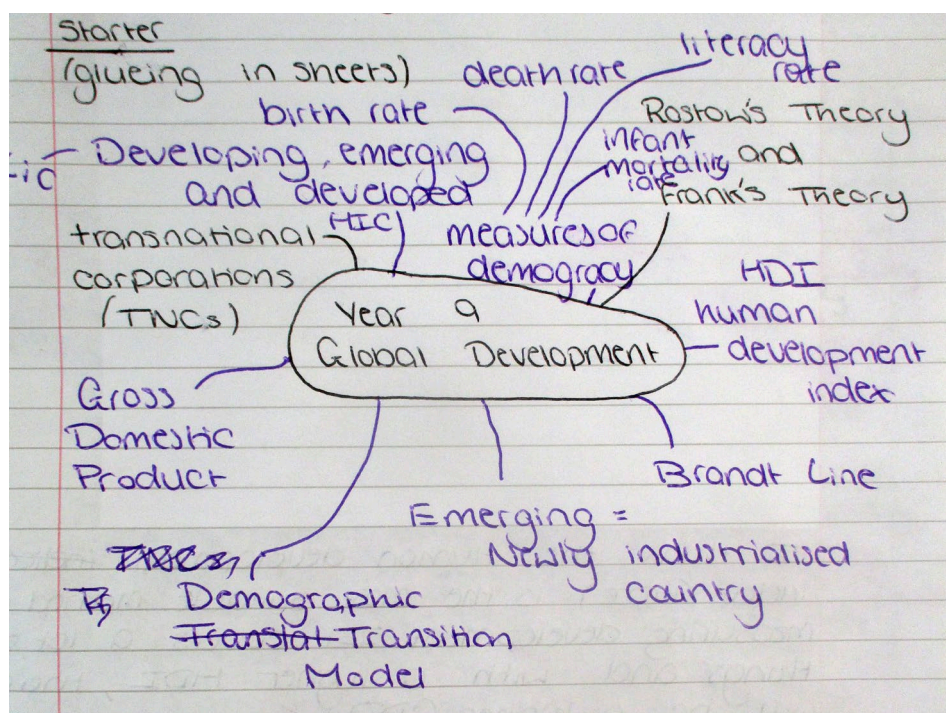 Starter
(glueing in sheets)
birth rate
death rate
literacy
rate
infant
mortality
rate
Rostow's Theory
and
Frank's Theory
Developing, emerging
and developed
HIC
measures of
demogracy
transnational
corporations
(TNCs)
Year 9
Global Development
HDI
human
development
index
Gross
Domestic
Product
Brandt Line
Emerging =
Newly industrialised
country
Demographic
Translat Transition
Model